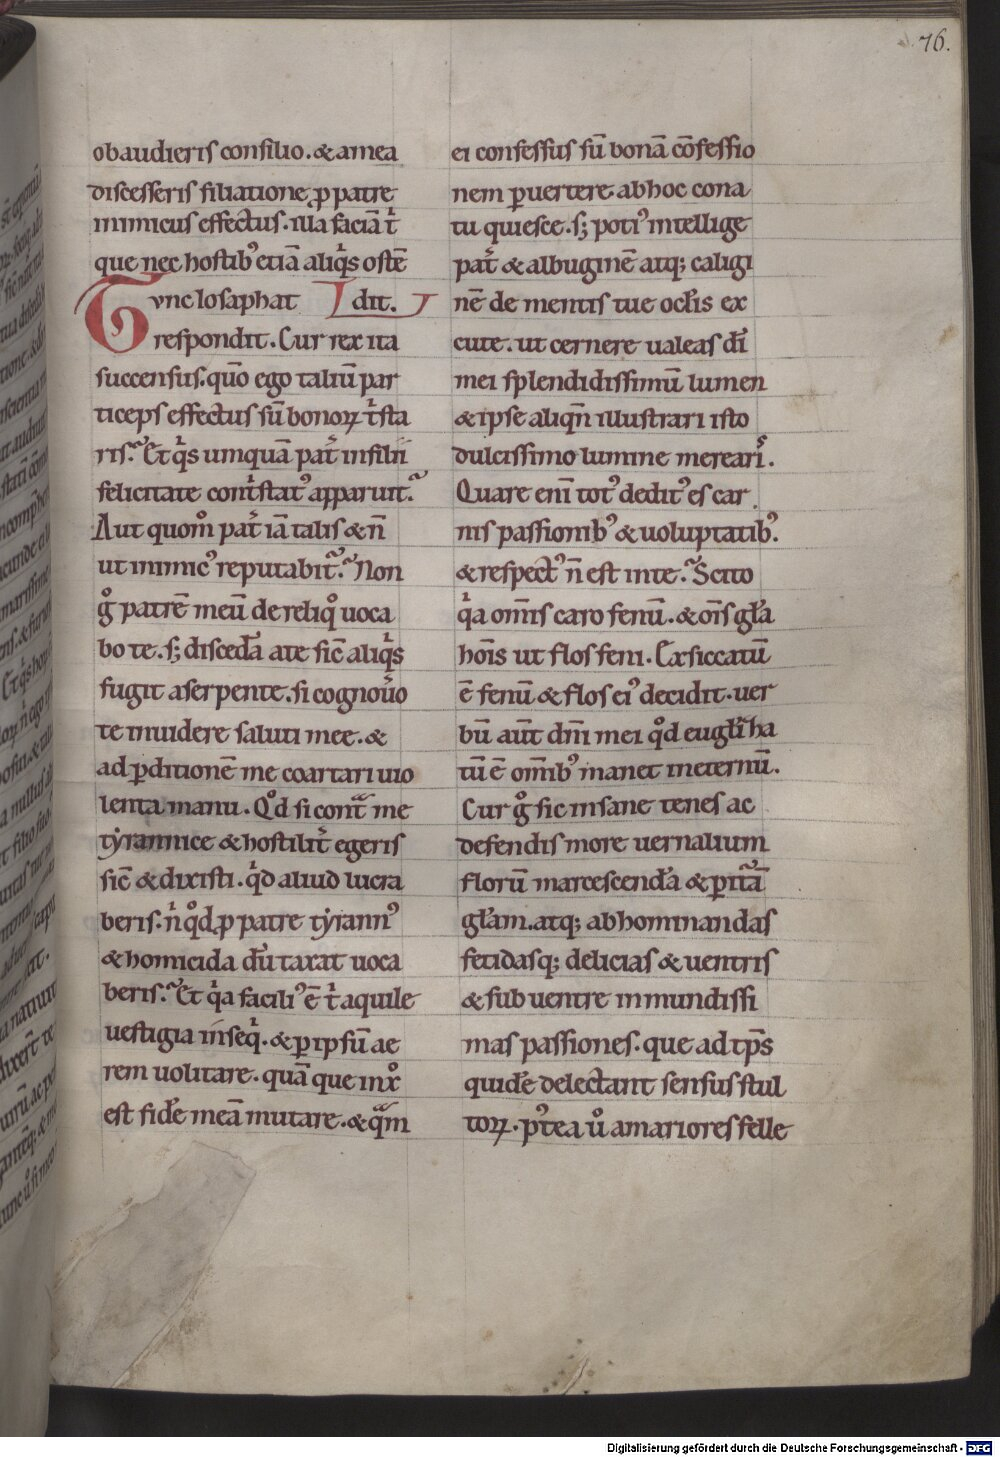 76.
obaudieris consilio. & a mea
discesseris filiatione, ꝓ patre
inimicus effectus. illa faciā t͛
que nec hostibꝰ etiā aliqͥs ostē
Tvnc Iosaphat ⌊dit.
respondit. Cur rex ita
succensus. quō ego taliū par
ticeps effectus sū bonoꝝ t͛sta
ris? Et qͥs umquā pat͛ in filii
felicitate cont͛statꝰ apparuit?
Aut quom̊ pat͛ iā talis & n̄
ut inimicꝰ reputabit͛? Non
g̊ patrē meū de reliqͦ uoca
bo te. sꝫ discedā a te sic̄ aliqͥs
fugit a serpente. si cognoůo
te inuidere saluti mee. &
ad ꝑditionē me coartari uio
lenta manu. Qd̊ si contͣ me
tyrannice & hostilit͛ egeris
sic̄ & dixisti. qͥd aliud lucra
beris. n̄ qͦd ꝓ patre tyrannꝰ
& homicida dū taxat uoca
beris? Et qͥa faciliꝰ ē t͛ aquile
uestigia inseqͥ. & ꝑ ipsū ae
rem uolitare. quā que in xp̊
est fidē meā mutare. & qͣm
ei confessus sū bonā cōfessio
nem ꝑuertere ab hoc cona
tu quiesce. sꝫ potiꝰ intellige
pat͛ & albuginē atqꝫ caligi
nē de mentis tue oclis ex
cute. ut cernere ualeas dī
mei splendidissimū lumen
& ipse aliqn̄ illustrari isto
dulcissimo lumine merearis.
Quare enī totꝰ deditꝰ es car
nis passionibꝰ & uoluptatibꝰ.
& respectꝰ n̄ est in te? Scito
qͥa om̄is caro fenū. & oīs gła
hoīs ut flos feni. Exsiccatū
ē fenū & flos eiꝰ decidit. uer
bū aūt dn̄i mei qd̊ eugłiȝa
tū ē om̄ibꝰ manet in eternū.
Cur g̊ sic insane tenes ac
defendis more uernalium
florū marcescendā & ꝑitͣā
głam. atqꝫ abhominandas
fetidasqꝫ delicias & uentris
& sub uentre inmundissi
mas passiones. que ad tp̄s
quidē delectant sensus stul
toꝝ. pͦtea ů amariores felle
Digitalisierung gefördert durch die Deutsche Forschungsgemeinschaft - DFG